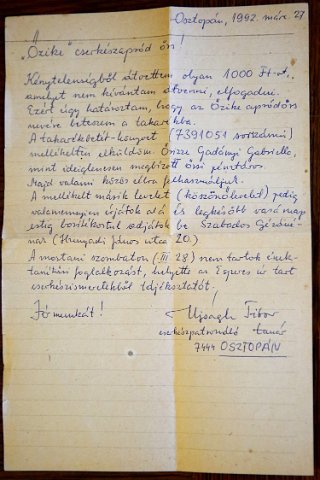 Osztopán, 1992. márc. 27.
"Őzike" cserkészapród őrs!
Kénytelenségből átvettem olyan 1000 Ft-ot,
amelyet nem kívántam átvenni, elfogadni.
Ezért úgy határoztam, hogy az Őzike apródőrs
nevére beteszem a takarékba.
A takarékbetét-könyvet (7391051 sorszámú)
mellékelten elküldöm Gadányi Gabriella,
mint ideiglenesen megbízott őrsi pénztáros.
Majd valami közös célra felhasználjuk.
A mellékelt másik levelet (köszönőlevelet) pedig
valamennyien írjátok alá és legkésőbb vasárnap
estig borítékostul adjátok be Szabados Gézáné-
nak (Hunyadi János utca 20.)
A mostani szombaton (III. 28) nem tartok ének-
tanítási foglalkozást, helyette az Egyeres úr tart
cserkészismeretekből tájékoztatót.
Jó munkát!
Ujsághy Tibor
cserkészpatronáló tanár
7444 OSZTOPÁN